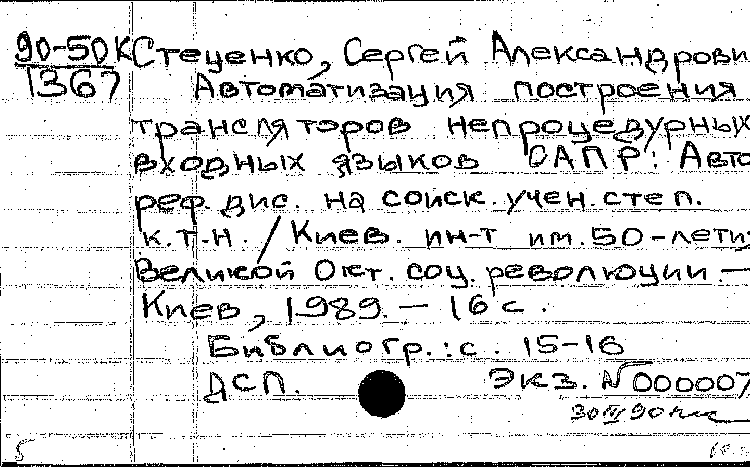 90-50К Стеценко, Сергей Александрови
1367 Автоматизация построения
трансляторов непроцедурных
входных языков САПР: Авто
реф. дис. на соиск. учен. степ.
к.т.н. / Киев. ин-т им. 50-лети
Великой Окт. соц. революции. —
Киев, 1989. — 16 с.
Библиогр.: с. 15-16
ДСП. Экз. № 000007
5